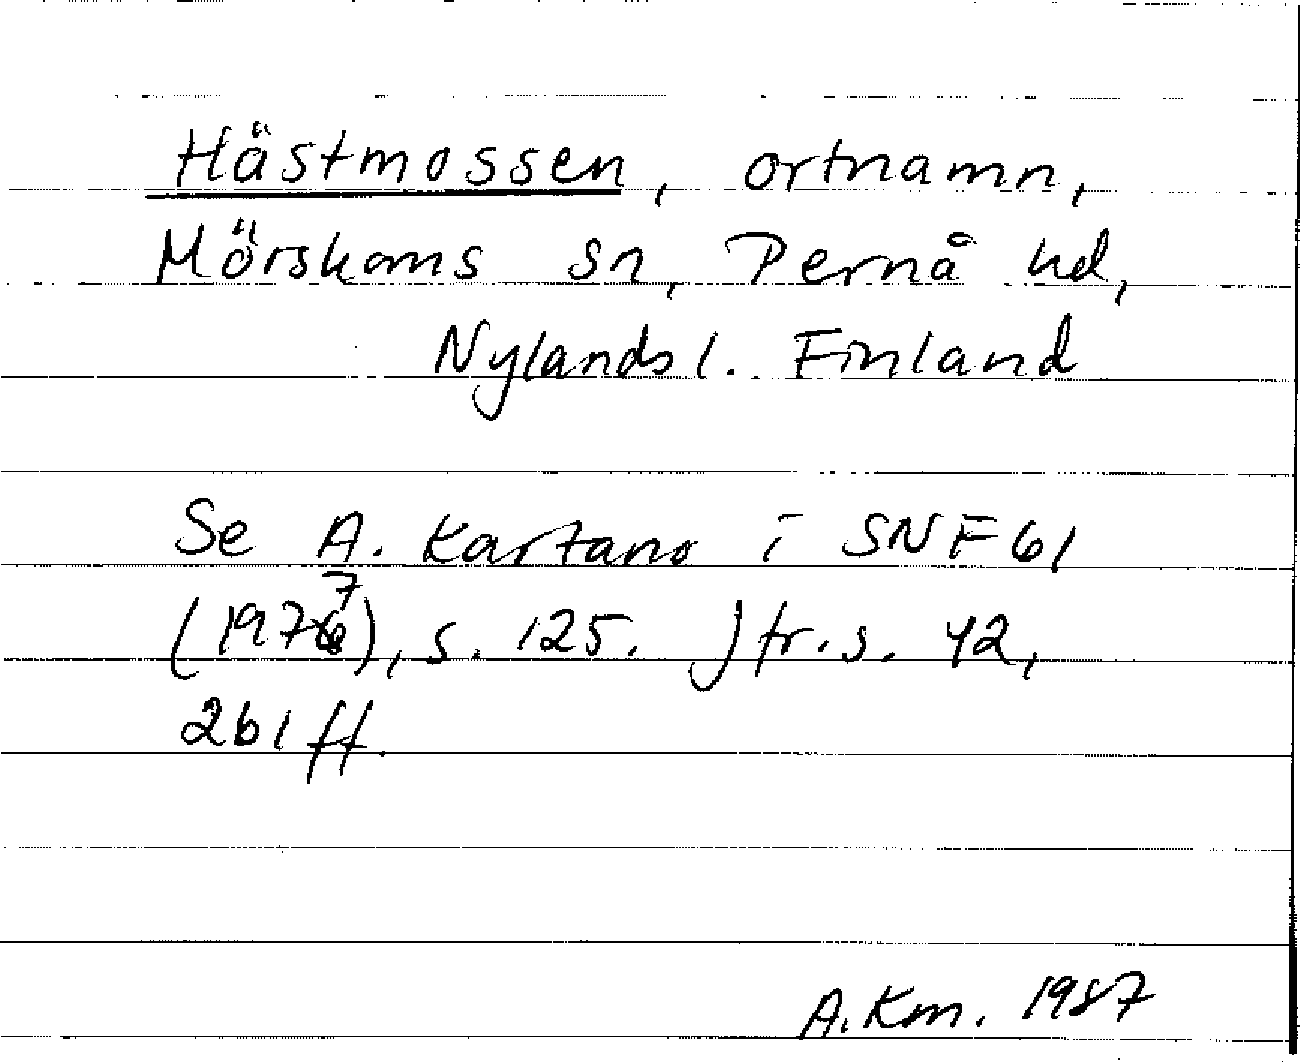 Hästmossen, ortnamn,
Mörskoms sn, Pernå hd,
Nylands l. Finland
Se A. Kartano i SNF 61
(1977), s. 125. Jfr. s. 42,
261 ff.
A. Km. 1987